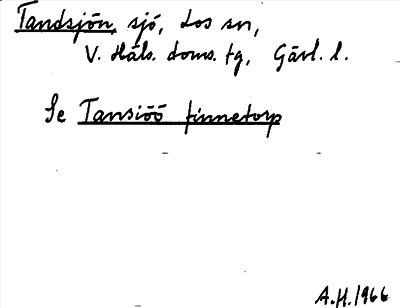 Tandsjön, sjö, Los sn,
V. Häls. doms. tg, Gävl. l.
Se Tansiöö finnetorp
A.H. 1966